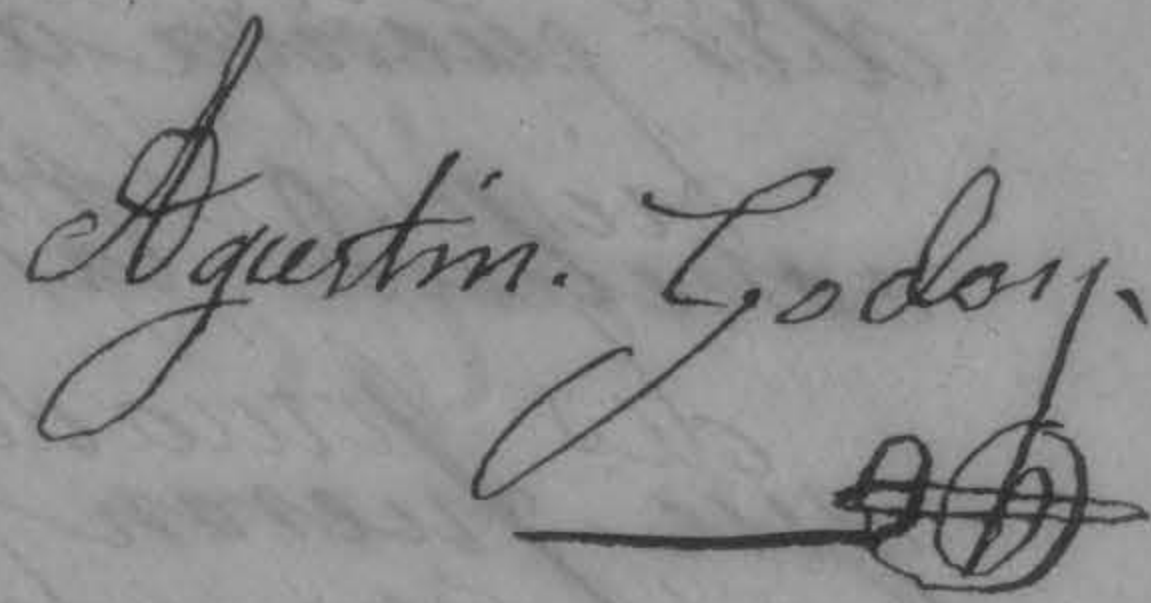 Agustin. Godoy.